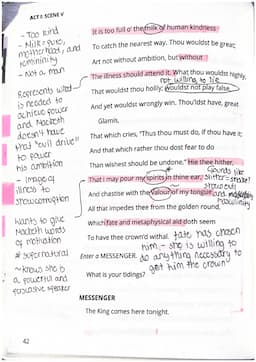 ACT I: SCENE V
It is too full o' the milk of human kindness
To catch the nearest way. Thou wouldst be great;
Art not without ambition, but without
The illness should attend it. What thou wouldst highly,
not willing to lie
That wouldst thou holily; wouldst not play false,
And yet wouldst wrongly win. Thou'ldst have, great
Glamis,
That which cries, "Thus thou must do, if thou have it;
And that which rather thou dost fear to do
Than wishest should be undone." Hie thee hither,
That I may pour my spirits in thine ear,
And chastise with the valour of my tongue
All that impedes thee from the golden round,
Which fate and metaphysical aid doth seem
To have thee crown'd withal.
Enter a MESSENGER.
What is your tidings?
MESSENGER
The King comes here tonight.
- Too kind
- Milk = pure,
motherhood, and
femininity
- Not a man
Represents what
is needed to
achieve power
and Macbeth
doesn't have
that "evil drive"
to power
his ambition
- Image of
illness to
show corruption
Wants to give
Macbeth words
of motivation
* supernatural
- knows she is
a powerful and
persuasive speaker
sounds like
shows evil
and
masculinity
fate has chosen
him - she is willing to
do anything necessary to
get him the crown!
42